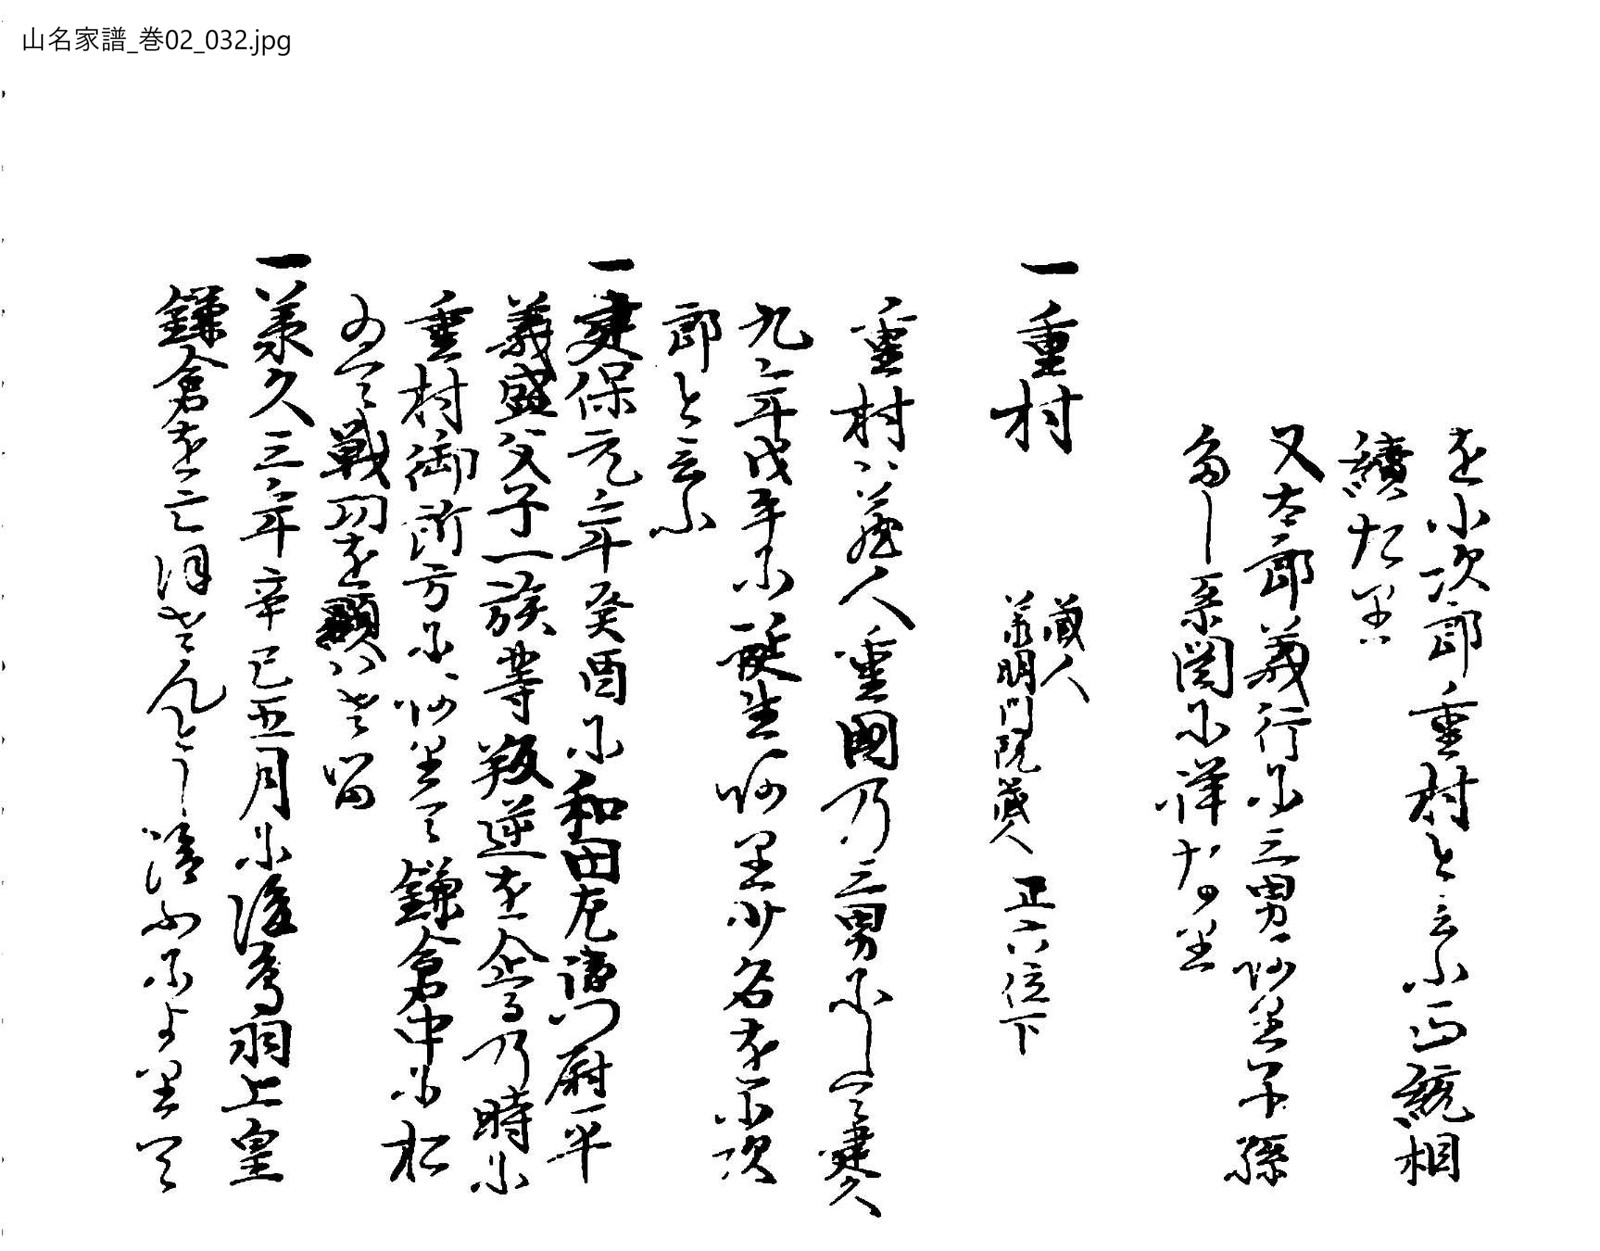 山名家譜_巻02_032.jpg
を小次郎重村と云ふ正統相
續たり
又太郎義行に三男有り子孫
多し系圖に祥なり
一重村
蔵人
義明門院蔵人
正六位下
重村ハ蔵人重國乃三男にして建久
九年戊午に誕生有り少名を小次
郎と云ふ
一建保元年癸酉に和田左衛門尉平
義盛父子一族等叛逆を企る乃時に
重村御所方に有りて鎌倉中に於
ゐて戦功を顕ハせ留
一義久三年辛巳五月に後鳥羽上皇
鎌倉を亡ほさんと